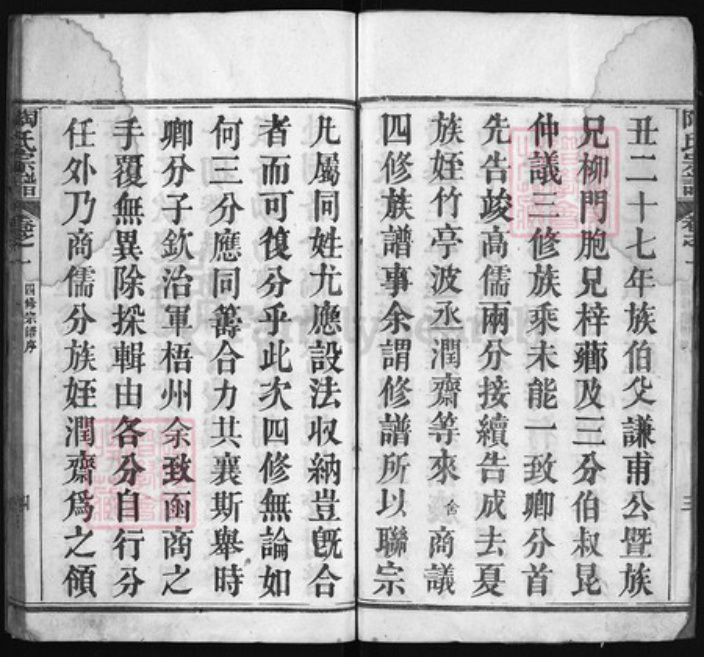 丑二十七年族伯父謙甫公暨族
兄柳門胞兄梓薌及三分伯叔昆
仲議三修族乘未能一致卿分首
先告竣高儒兩分接續告成去夏
族姪竹亭波丞潤齋等來舍商議
四修族譜事余謂修譜所以聯宗
凡屬同姓尤應設法収納豈旣合
者而可復分乎此次四修無論如
何三分應同籌合力共襄斯舉時
卿分子欽治軍梧州余致函商之
手覆無異除採輯由各分自行分
任外乃商儒分族姪潤齋爲之領
陶氏宗譜
卷之一
四修宗譜序
四
陶氏宗譜
卷之一
三
FamilySearch